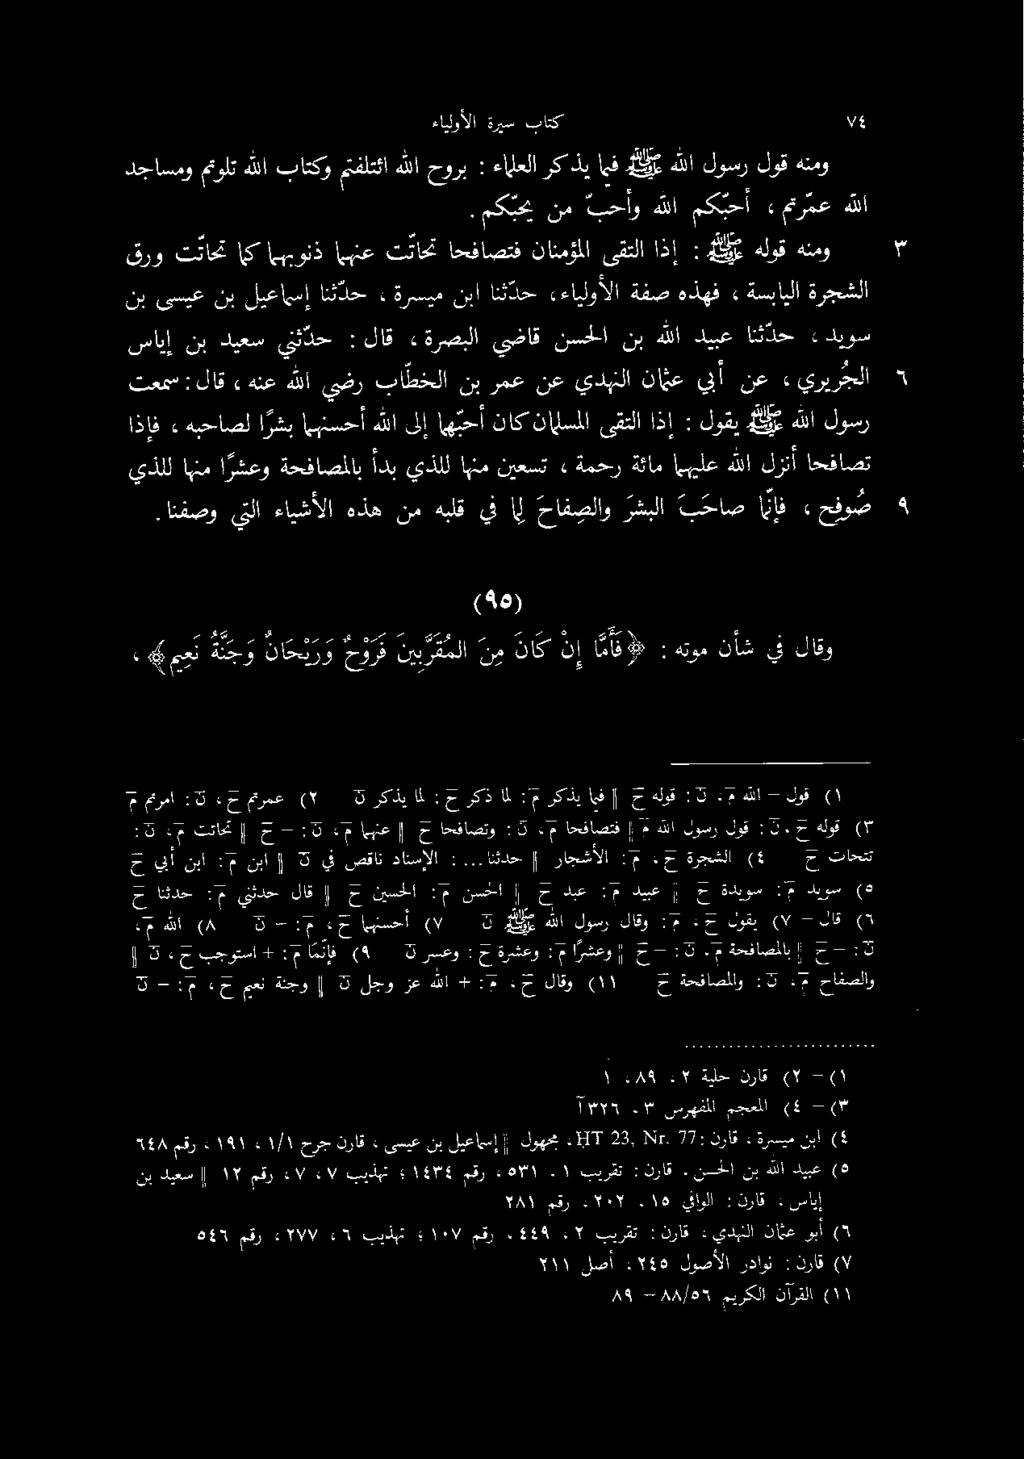 ٧٤ كتاب سيرة الأولياء
ومنه قول رسول الله ﷺ فيما يذكر العلماء : بروح الله ائتلفتم وكتاب الله تلوتم ومساجد
الله عمّرتم ، أحبّكم الله وأحبّ من يحبّكم .
٣ ومنه قوله ﷺ : إذا التقى المؤمنان فتصافحا تحاتّت عنهما ذنوبهما كما تحاتّت ورق
الشجرة اليابسة ، فهذه صفة الأولياء، حدّثنا ابن ميسرة ، حدّثنا إسماعيل بن عيسى بن
سويد ، حدّثنا عبيد الله بن الحسن قاضي البصرة ، قال : حدّثني سعيد بن إياس
٦ الجُريري ، عن أبي عثمان النهدي عن عمر بن الخطّاب رضي الله عنه ، قال: سمعت
رسول الله ﷺ يقول : إذا التقى المسلمان كان أحبّهما إلى الله أحسنهما بشرًا لصاحبه ، فإذا
تصافحا أنزل الله عليهما مائة رحمة ، تسعين منها للذي بدأ بالمصافحة وعشرًا منها للذي
٩ صُوفِح ، فإنّما صاحَبَ البشرَ والصِفاحَ لِما في قلبه من هذه الأشياء التي وصفنا .
(٩٥)
وقال في شأن موته : ﴿فَأَمَّا إِنْ كَانَ مِنَ المُقَرَّبِينَ فَرَوْحٌ وَرَيْحَانٌ وَجَنَّةُ نَعِيمٍ﴾ ،
١) قول – الله م ، ن : قوله ح || فيما يذكر م : لما ذكر ح : لما يذكر ن ٢) عمرتم ح ، ن : امرتم م
٣) قوله ح ، ن : قول رسول الله م || فتصافحا م ، ن : وتصافحا ح || عنهما م ، ن : – ح || تحاتت م ، ن :
تتحات ح ٤) الشجرة ح ، م : الأشجار || حدثنا ... : الإسناد ناقص في ن || ابن م : ابن أبي ح
٥) سويد م : سويدة ح || عبيد م : عبد ح || الحسن م : الحسين ح || قال حدثني م : حدثنا ح
٦) قال – ٧) يقول ح ، م : وقال رسول الله ﷺ ن ٧) أحسنهما ح ، م : – ن ٨) الله م ،
ن : – ح || بالمصافحة م ، ن : – ح || وعشرًا م : وعشرة ح : وعسر ن ٩) فإنّما م : + استوجب ح ، ن ||
والصفاح م ، ن : والمصافحة ح ١١) وقال ح ، م : + الله عز وجل ن || وجنة نعيم ح ، م : – ن
١) – ٢) قارن حلية ٢ ، ٨٩ ، ١
٣) – ٤) المعجم المفهرس ٣ ، ٣٢٦آ
٤) ابن ميسرة ، قارن : HT 23, Nr. 77 ، مجهول || إسماعيل بن عيسى ، قارن جرح ١/١ ، ١٩١ ، رقم ٦٤٨
٥) عبيد الله بن الحسن ، قارن : تقريب ١ ، ٥٣١ ، رقم ١٤٣٤ ؛ تهذيب ٧ ، ٧ ، رقم ١٢ || سعيد بن
إياس ، قارن : الوافي ١٥ ، ٢٠٢ ، رقم ٢٨١
٦) أبو عثمان النهدي ، قارن : تقريب ٢ ، ٤٤٩ ، رقم ١٠٧ ؛ تهذيب ٦ ، ٢٧٧ ، رقم ٥٤٦
٧) قارن : نوادر الأصول ٢٤٥ ، أصل ٢١١
١١) القرآن الكريم ٨٨/٥٦ – ٨٩